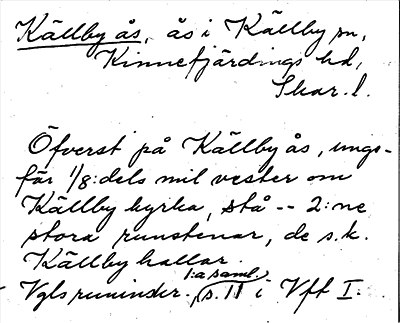 Källby ås, ås i Källby sn,
Kinnefjärdings hd,
Skar. l.
Öfverst på Källby ås, ungs-
fär 1/8:dels mil vester om
Källby kyrka, stå -- 2:ne
stora runstenar, de s.k.
Källby hallar.
1:a saml.
Vgls runinskr. s. 11 i Vff I.